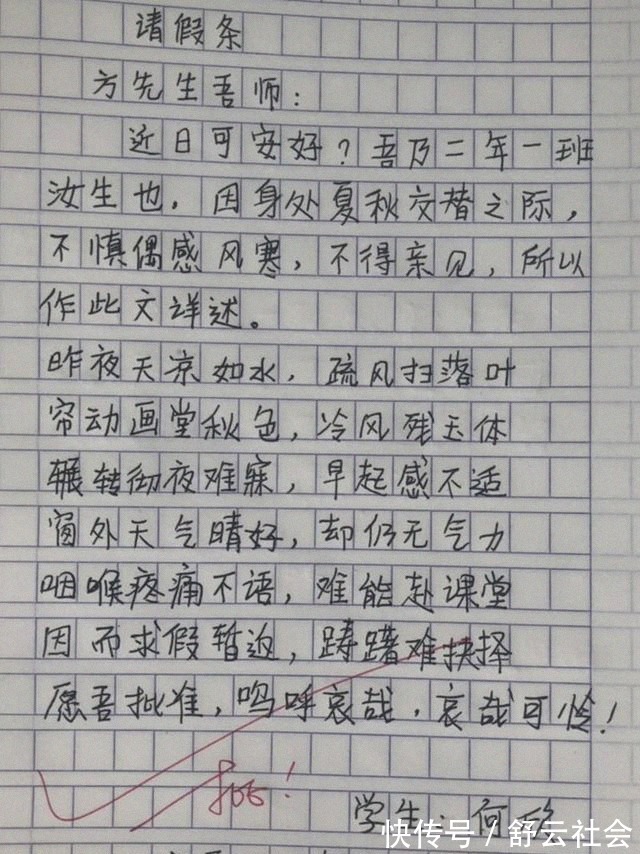 请假条
方先生吾师：
近日可安好？吾乃二年一班
汝生也，因身处夏秋交替之际，
不慎偶感风寒，不得亲见，所以
作此文详述。
昨夜天凉如水，疏风扫落叶
帘动画堂秋色，冷风残玉体
辗转彻夜难寐，早起感不适
窗外天气晴好，却仍无气力
咽喉疼痛不语，难能赴课堂
因而求假暂返，踌躇难抉择
愿吾批准，呜呼哀哉，哀哉可怜！
批！
学生：何
快传号／舒云社会